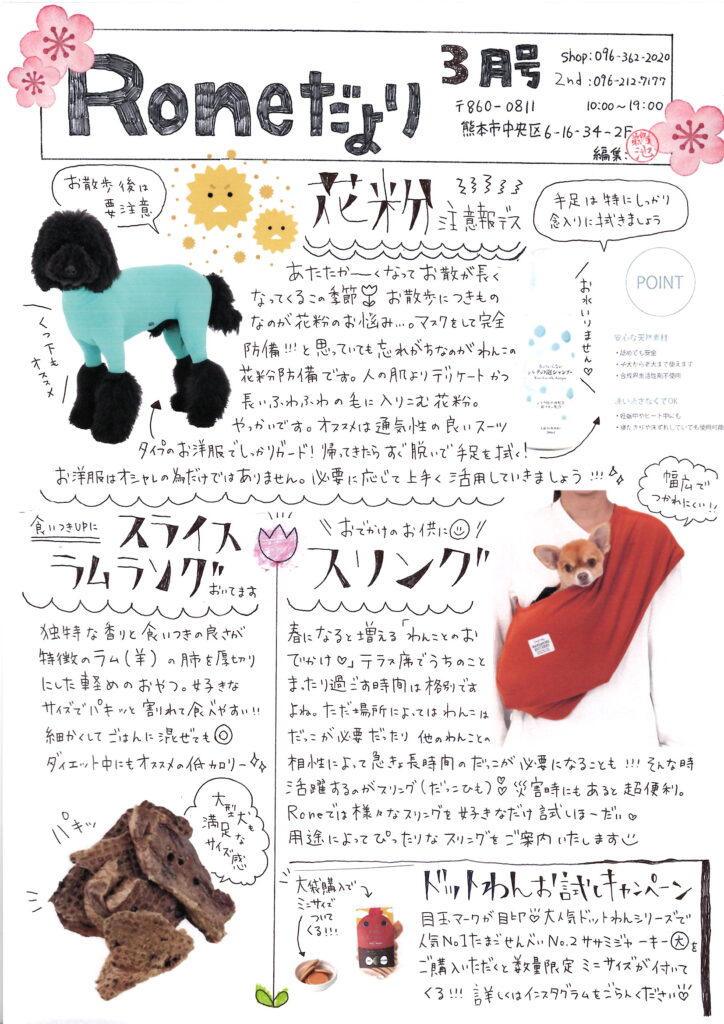 Roneだより
3月号
shop:096-362-2020
2nd:096-212-7177
〒860-0811
10:00~19:00
熊本市中央区6-16-34-2F
編集:
お散歩後は
要注意
くつ下も
オススメ
花粉
注意報デス
手足は特にしっかり
念入りに拭きましょう
お水いりません♡
POINT
安心な天然素材
・舐めても安全
・子犬から老犬まで使えます
・合成界面活性剤不使用
洗い流さなくてOK
・妊娠中やヒート中にも
・寝たきりや床ずれしていても使用可能
あたたか〜くなってお散が長く
なってくるこの季節 お散歩につきもの
なのが花粉のお悩み...。マスクをして完全
防備!!!と思っていても忘れがちなのがわんこの
花粉防備です。人の肌よりデリケートかつ
長いふわふわの毛に入りこむ花粉。
やっかいです。オススメは通気性の良いスーツ
タイプのお洋服でしっかりガード!帰ってきたらすぐ脱いで手足を拭く!
お洋服はオシャレの為だけではありません。必要に応じて上手く活用していきましょう!!!
食いつきUPに
スライス
ラムラング
おいてます
独特な香りと食いつきの良さが
特徴のラム(羊)の肺を厚切り
にした軽めのおやつ。好きな
サイズでパキッと割れて食べやすい!!
細かくしてごはんに混ぜても◎
ダイエット中にもオススメの低カロリー
パキッ
大型犬も
満足な
サイズ感
\\おでかけのお供に☺//
スリング
幅広で
つかれにくい!!
春になると増える「わんことのお
でかけ♡」テラス席でうちのこと
まったり過ごす時間は格別です
よね。ただ場所によってはわんこは
だっこが必要だったり他のわんことの
相性によって急きょ長時間のだっこが必要になることも!!!そんな時
活躍するのがスリング(だっこひも)♡災害時にもあると超便利。
Roneでは様々なスリングを好きなだけ試しほーだい♥
用途によってぴったりなスリングをご案内いたします
大袋購入で
ミニサイズ
ついて
くる!!!
ドットわんお試しキャンペーン
目玉マークが目印♡大人気ドットわんシリーズで
人気No.1たまごせんべいNo.2ササミジャーキー大を
ご購入いただくと数量限定ミニサイズが付いて
くる!!!詳しくはインスタグラムをごらんください♡